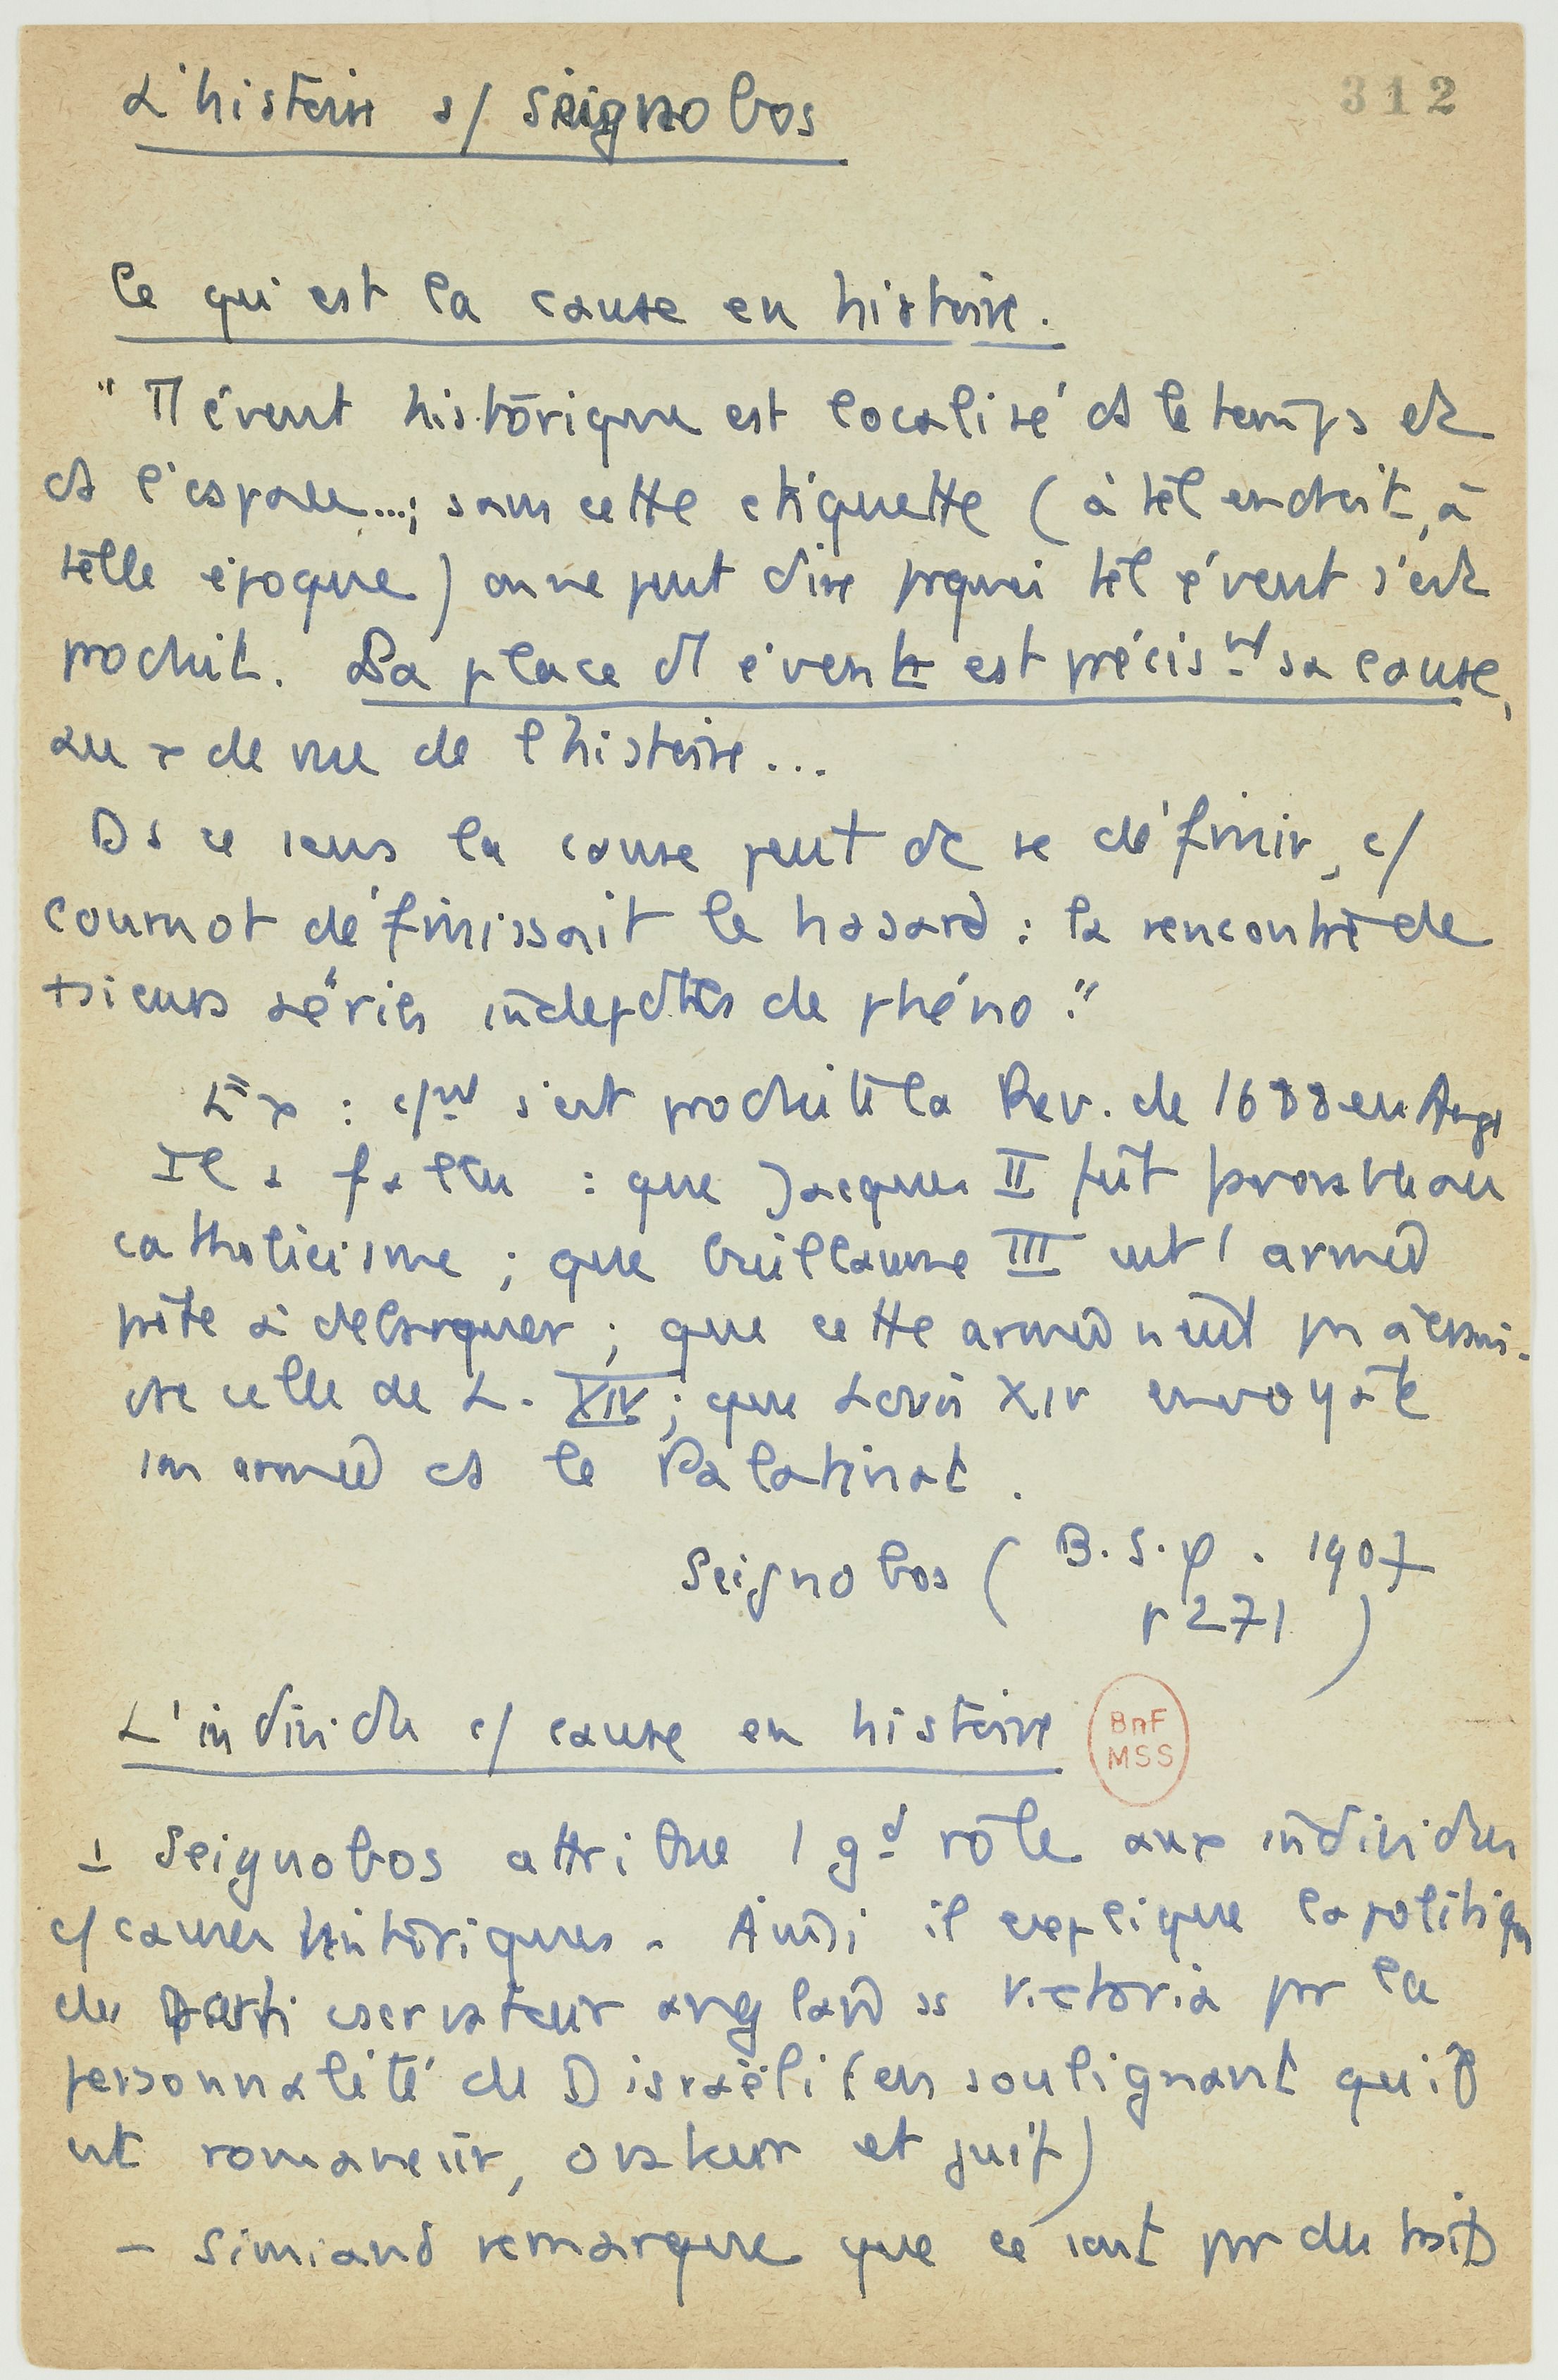 312
L'histoire s/ Seignobos
Ce qui est la cause en histoire.
" Tt évent historique est localisé ds le temps et
ds l'espace...; sans cette etiquette (à tel endroit, à
telle époque) on ne peut dire prquoi tel évent s'est
produit. La place d'1 évent est précis^nt sa cause,
au x de vue de l'histoire...
Ds ce sens la cause peut dc se définir, c/
Cournot définissait le hasard : la rencontre de
+sieurs séries indepdtes de phéno."
Ex : c/nt s'est produite la Rev. de 1688 en Angl
Il a fallu : que Jacques II fût
catholicisme ; que Guillaume III eut 1 armée
prête à debarquer ; que cette armée n'eût pas à crain-
dre celle de L. XIV ; que Louis XIV envoyât
son armée ds le Palatinat.
Seignobos (B.S.φ. 1907
p 271)
L'individu c/ cause en histoire
BnF
MSS
- Seignobos attribue 1 gd rôle aux individus
c/ causes historiques. Ainsi il explique la politique
du parti cservateur anglais ss Victoria par la
personnalité de Disraëli (en soulignant qu'il
est romancier, orateur et juif)
- Simiand remarque que ce sont par du traits